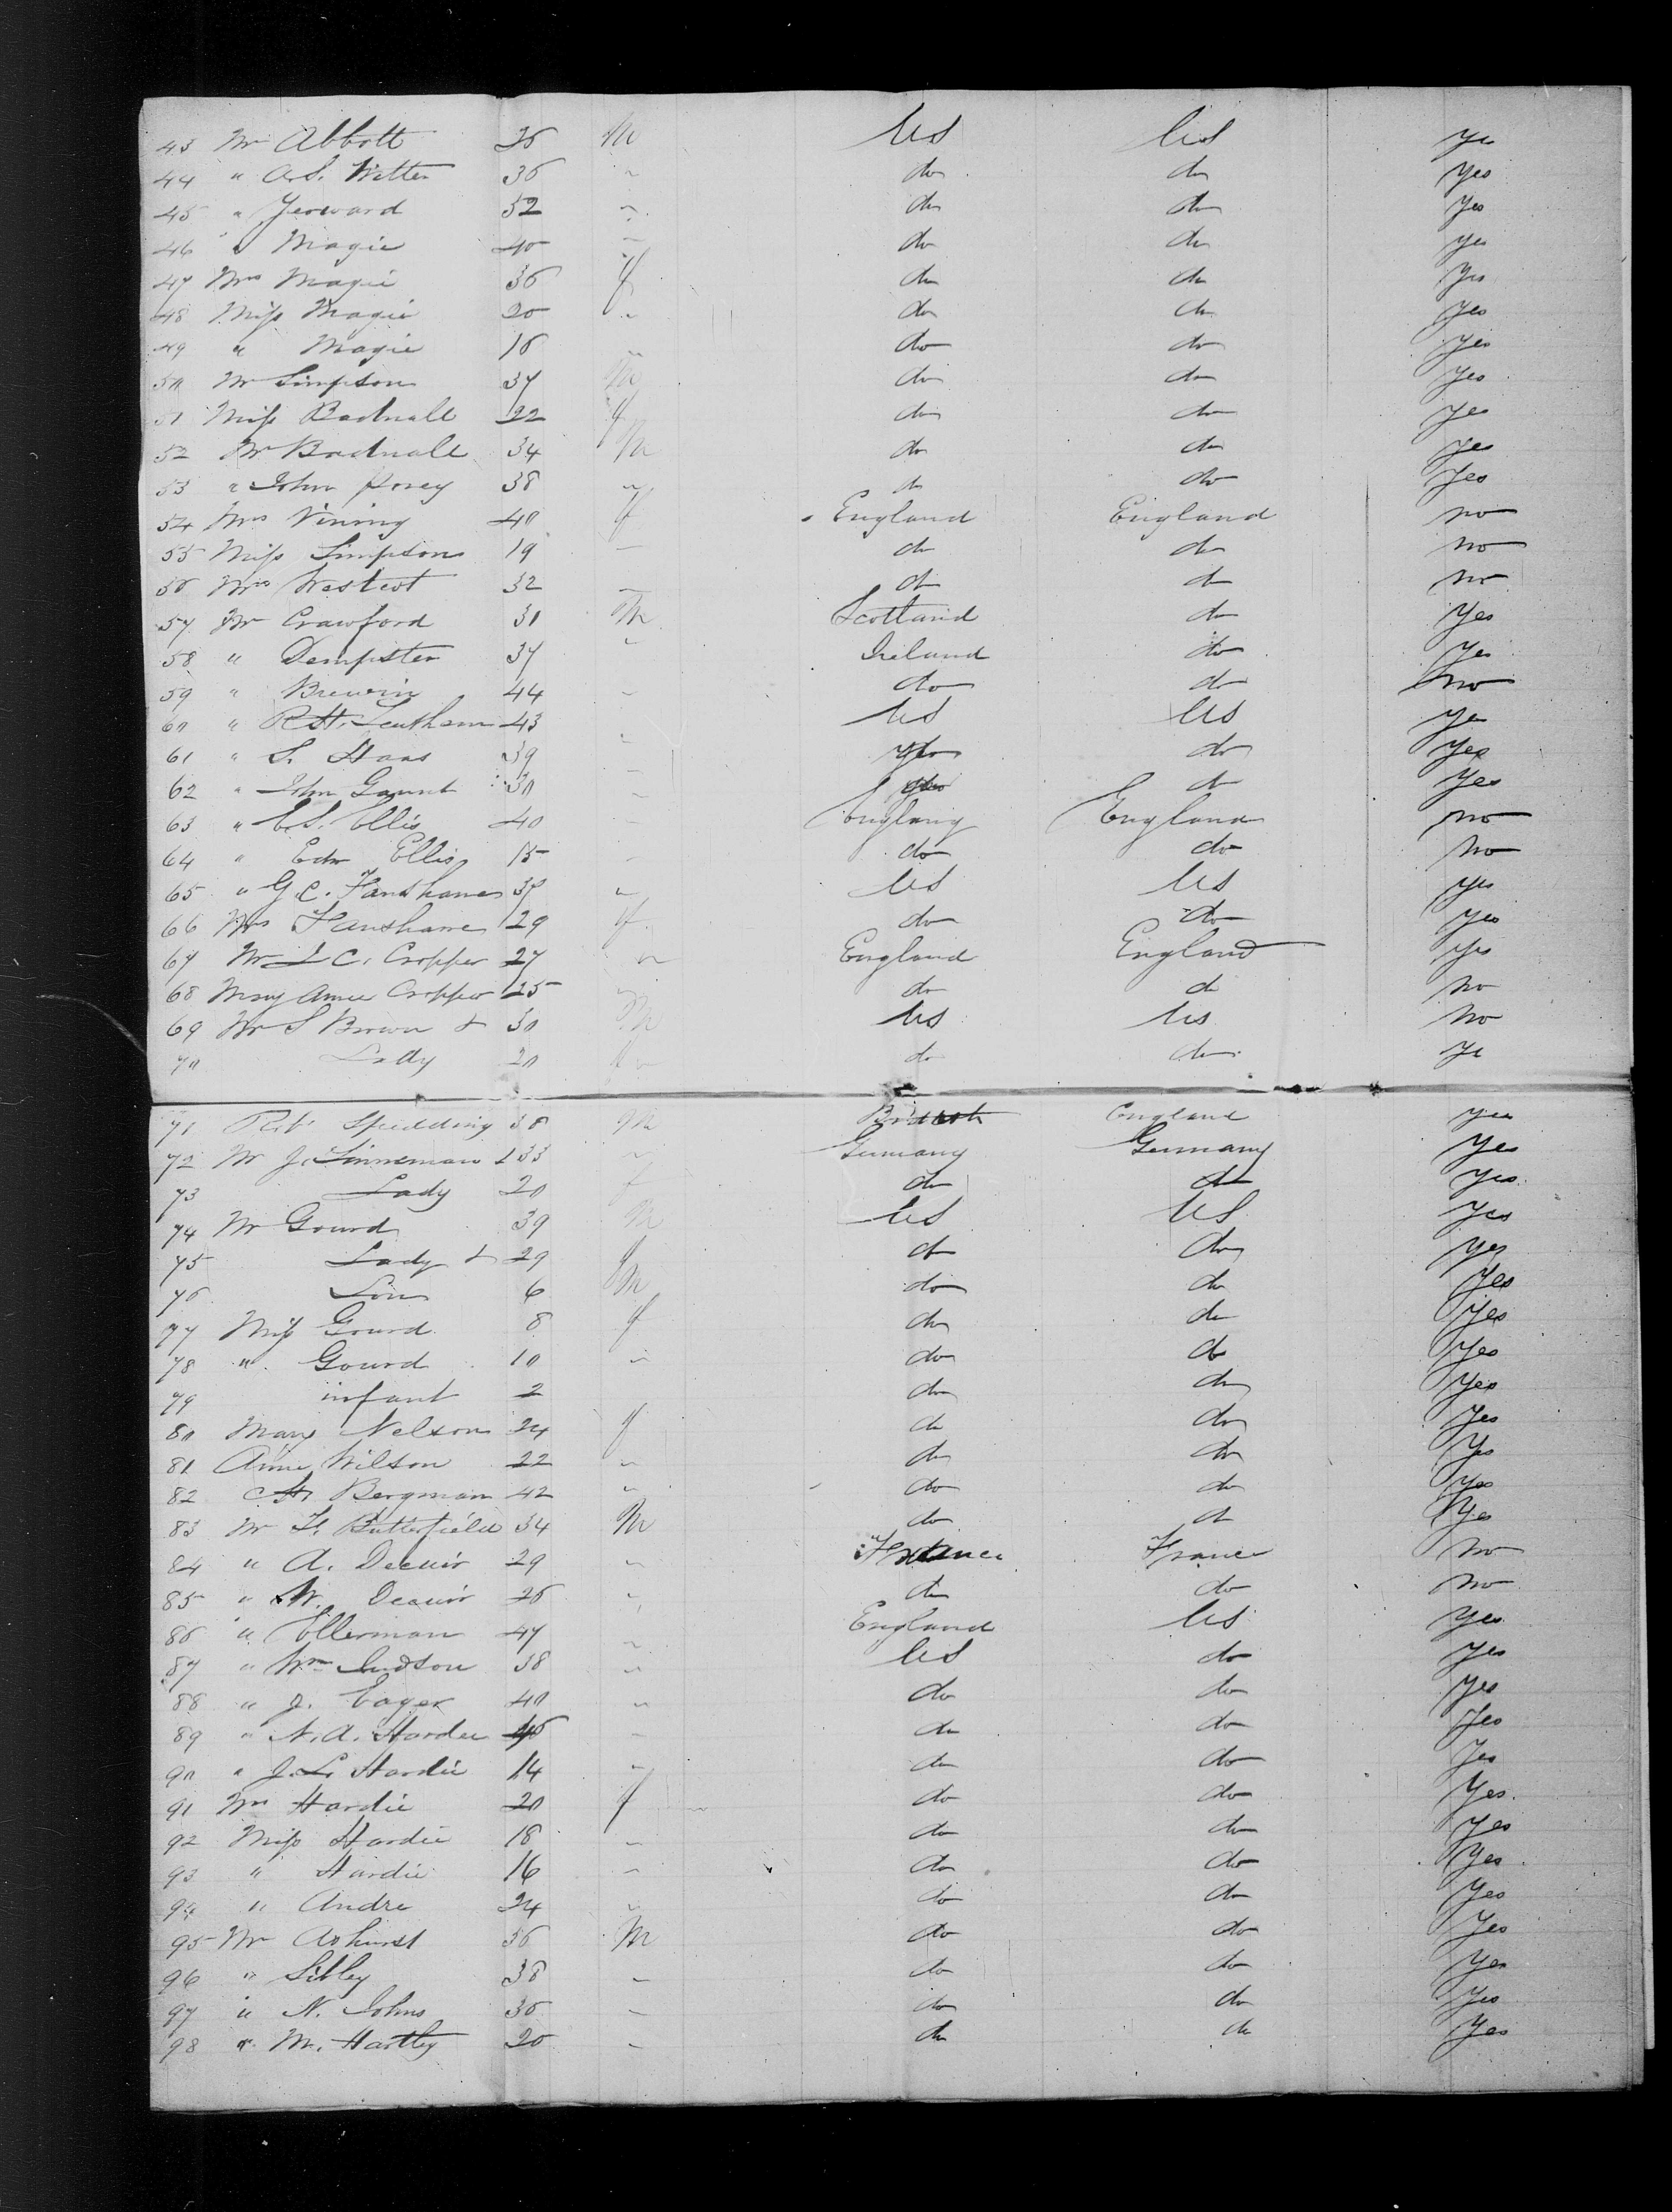 43 Mr Abbott 26 M US US yes
44 " A.S. Witter 36 " do do yes
45 " Yerward 32 " do do yes
46 " Magie 40 " do do yes
47 Mrs Magie 36 f do do yes
48 Miss Magie 20 " do do yes
49 " Magie 16 " do do yes
50 Mr Simpson 37 M do do yes
51 Miss Badnall 22 f do do yes
52 Mr Badnall 34 M do do yes
53 " John 38 " do do yes
54 Mrs Vining 40 f England England no
55 Miss Simpson 19 " do do no
56 Mrs 32 " do do no
57 Mr Crawford 31 M Scotland do yes
58 " Dempster 37 " Ireland do yes
59 " Brewin 44 " do do no
60 " R.H. 43 " US US yes
61 " S. Haas 39 " do yes
62 " John Gaunt 30 " do yes
63 " E.S. Ellis 40 " England England no
64 " Edw Ellis 15 " do do no
65 " G.C. Fanshawe 37 " US US yes
66 Mrs Fanshawe 29 f do do yes
67 Mr C. Cropper 27 " England England yes
68 Mary Anne Cropper 25 " do do no
69 Mr S Brown & 30 M US US no
70 Lady 20 do do ye
71 Rt Spedding 38 M England yes
72 Mr J. Linneman & 33 " Germany Germany yes
73 Lady 20 f do do yes
74 Mr Gourd 39 M US US yes
75 Lady & 29 f do do yes
76 Son 6 M do do yes
77 Miss Gourd 8 f do do yes
78 " Gourd 10 " do do yes
79 infant 2 do do yes
80 Mary Nelson 24 f do do yes
81 Anne Wilson 22 " do do yes
82 Bergman 42 " do do yes
83 Mr F. Butterfield 34 M do do yes
84 " A. Decuir 29 " France France no
85 " W. Decuir 26 " do do no
86 " Ellerman 47 " England US yes
87 " Wm Judson 38 " US do yes
88 " J. Eager 40 " do do yes
89 " N.A. Hardee 46 " do do yes
90 " J.L. Hardie 14 " do do yes
91 Mrs Hardie 20 f do do yes
92 Miss Hardie 18 " do do yes
93 " Hardie 16 " do do yes
94 " Andre 24 " do do yes
95 Mr Ashurst 36 M do do yes
96 " Sibley 38 " do do yes
97 " N. Johns 36 " do do yes
98 " M. Hartley 20 " do do yes